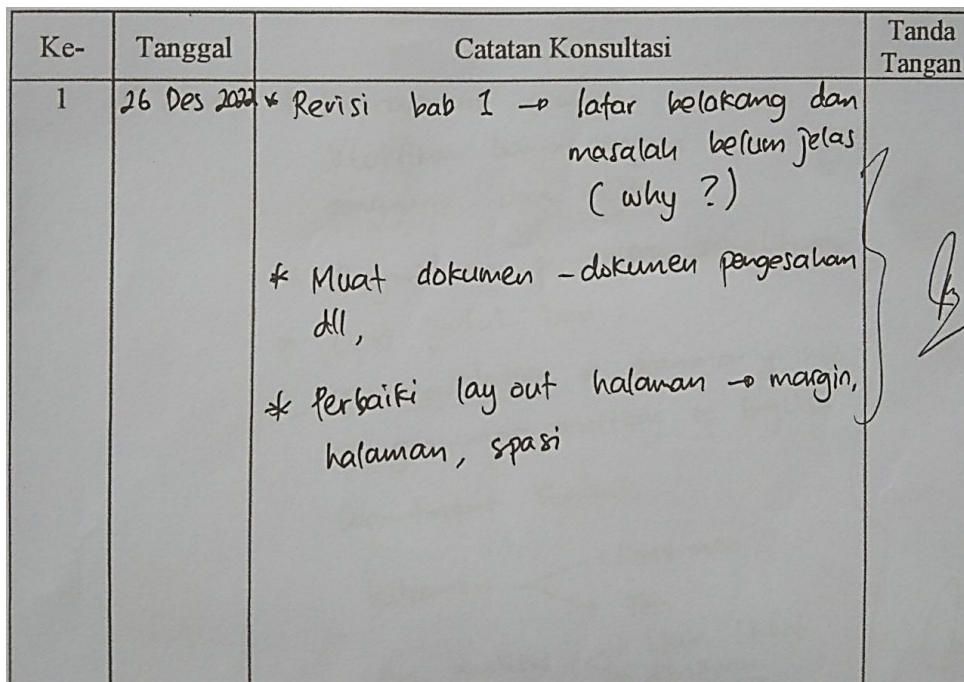 Ke- Tanggal Catatan Konsultasi Tanda Tangan
1 26 Des 2022 * Revisi bab 1 → latar belakang dan
masalah belum jelas
( why ? )
* Muat dokumen - dokumen pengesahan
dll,
* Perbaiki lay out halaman → margin,
halaman, spasi